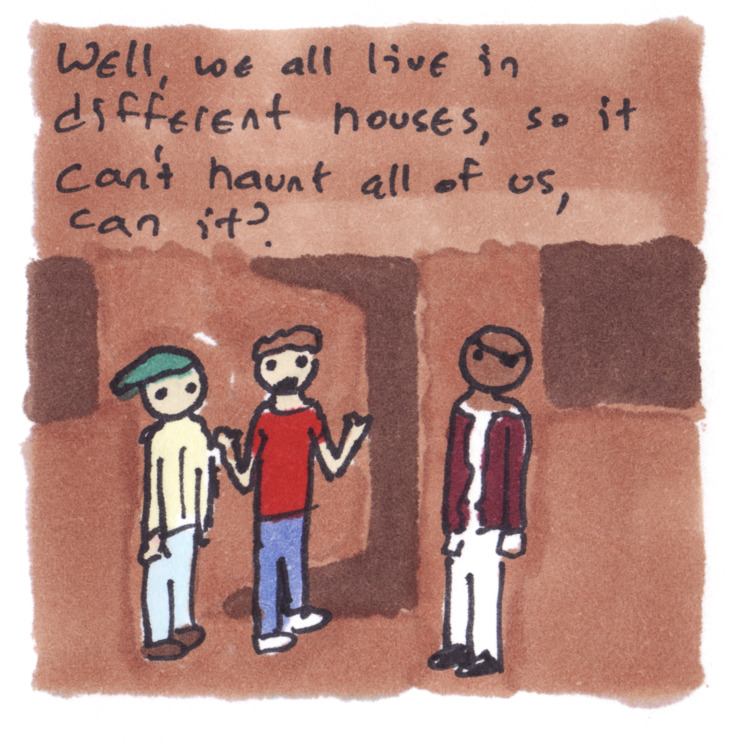 Well, we all live in
different houses, so it
can't haunt all of us,
can it?